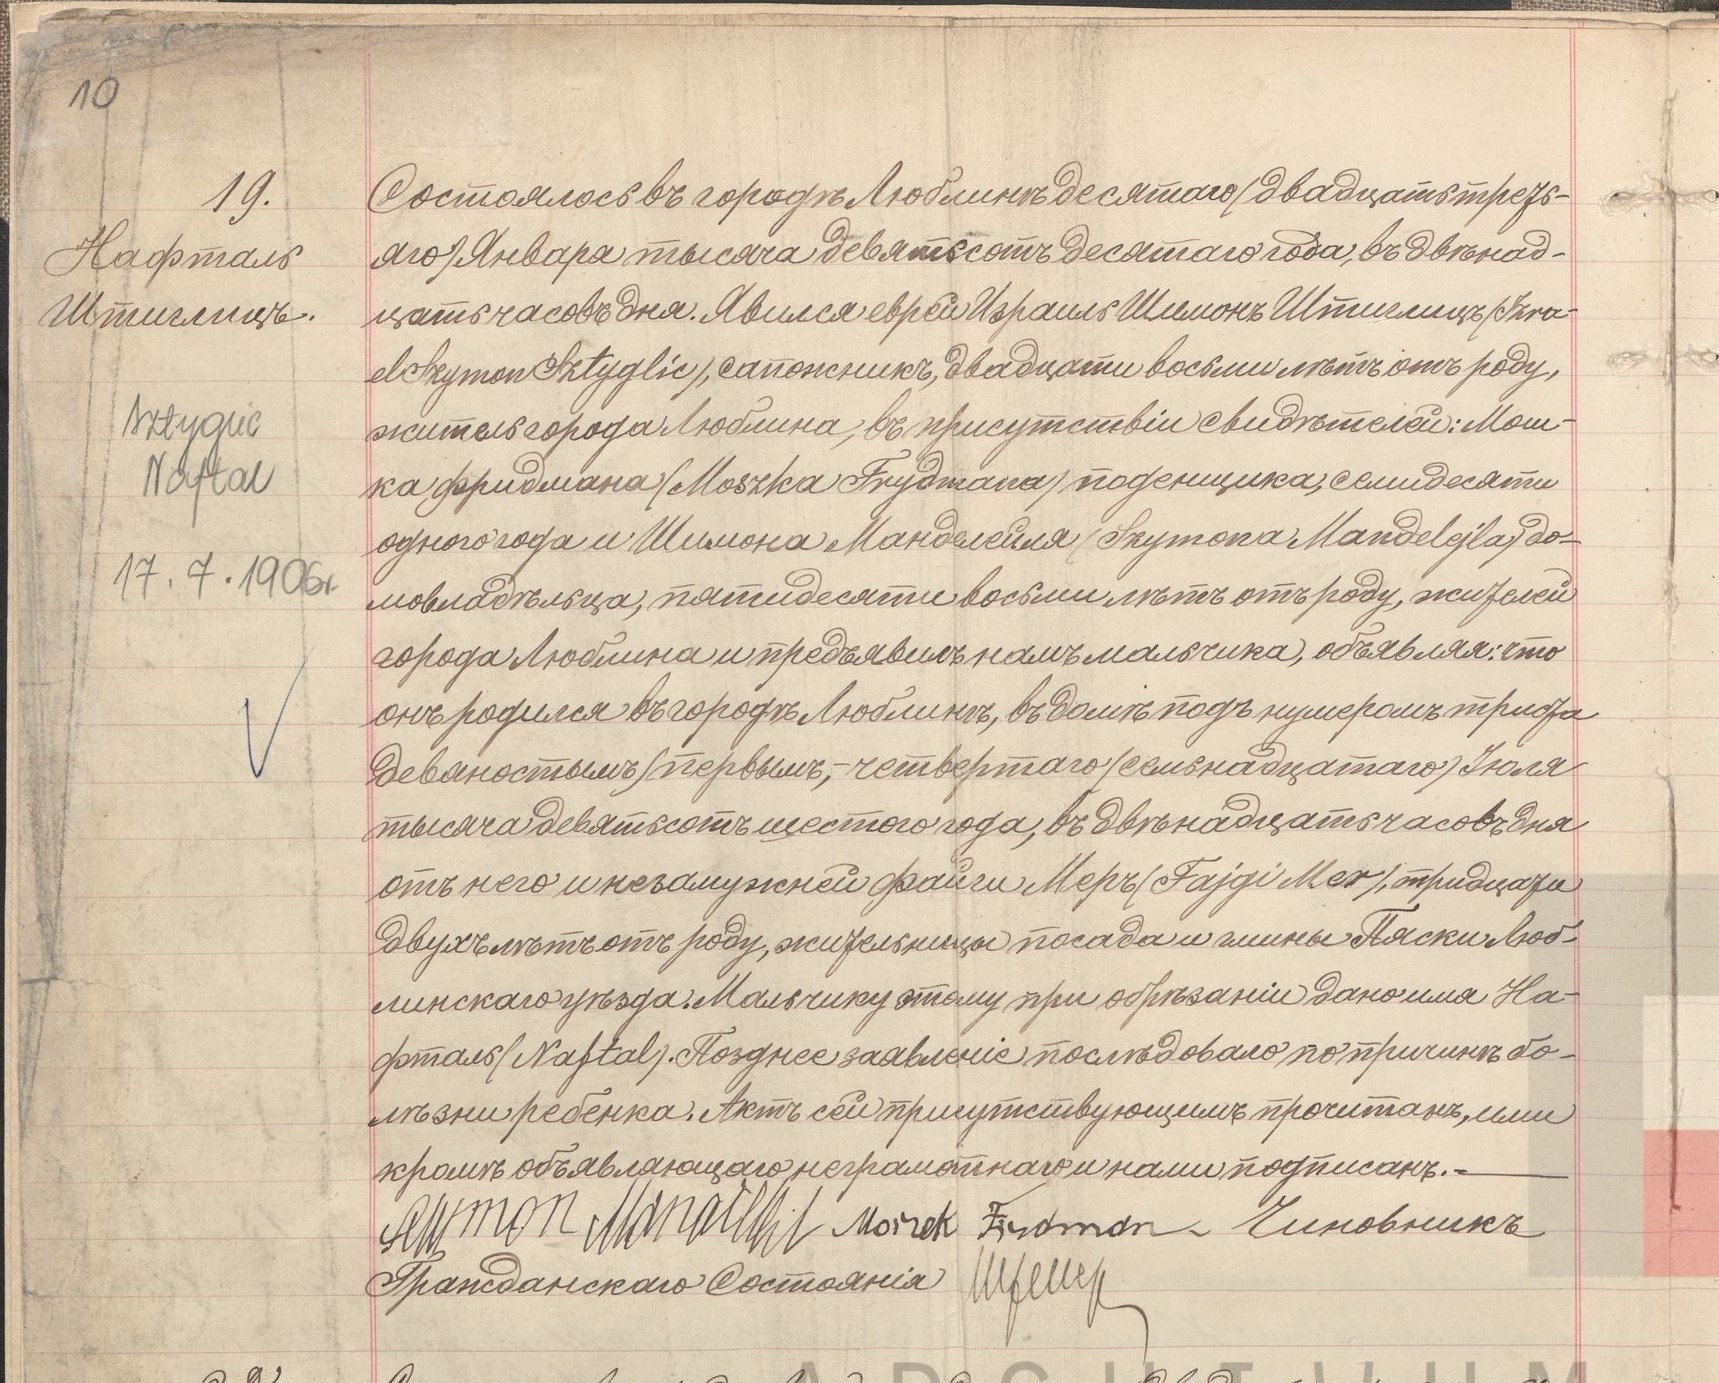 10
19.
Нафталь
Штиглицъ.
Sztyglic
Naftal
17.7.1906r.
Состоялось въ городѣ Люблинѣ десятаго (двадцать треть-
яго) Января тысяча девятьсотъ десятаго года, въ двѣнад-
цать часовъ дня. Явился еврей Израиль Шимонъ Штиглицъ (Izra-
el Szymon Sztyglic), сапожникъ, двадцати восьми лѣтъ отъ роду,
житель города Люблина, въ присутствіи свидѣтелей: Мош-
ка Фридмана (Moszka Frydmana) поденщика, семидесяти
одного года и Шимона Манделейля (Szymona Mandelejla) до-
мовладѣльца, пятидесяти восьми лѣтъ отъ роду, жителей
города Люблина и предъявилъ намъ мальчика, объявляя: что
онъ родился въ городѣ Люблинѣ, въ домѣ подъ нумеромъ триста
девяностымъ) первымъ,- четвертаго (семьнадцатаго) Іюля
тысяча девятьсотъ шестого года, въ двѣнадцать часовъ дня
отъ него и незамужней Файги Меръ (Fajgi Mer), тридцати
двухъ лѣтъ отъ роду, жительницы посада и гмины Пяски Люб-
линскаго уѣзда. Мальчику этому при обрѣзаніи дано имя На-
фталь (Naftal). Позднее заявленіе послѣдовало по причинѣ бо-
лѣзни ребенка. Актъ сей присутствующимъ прочитанъ, ими
кромѣ объявляющаго неграмотнаго и нами подписанъ.-
Moszek Frydman Чиновникъ
Гражданскаго Состоянія